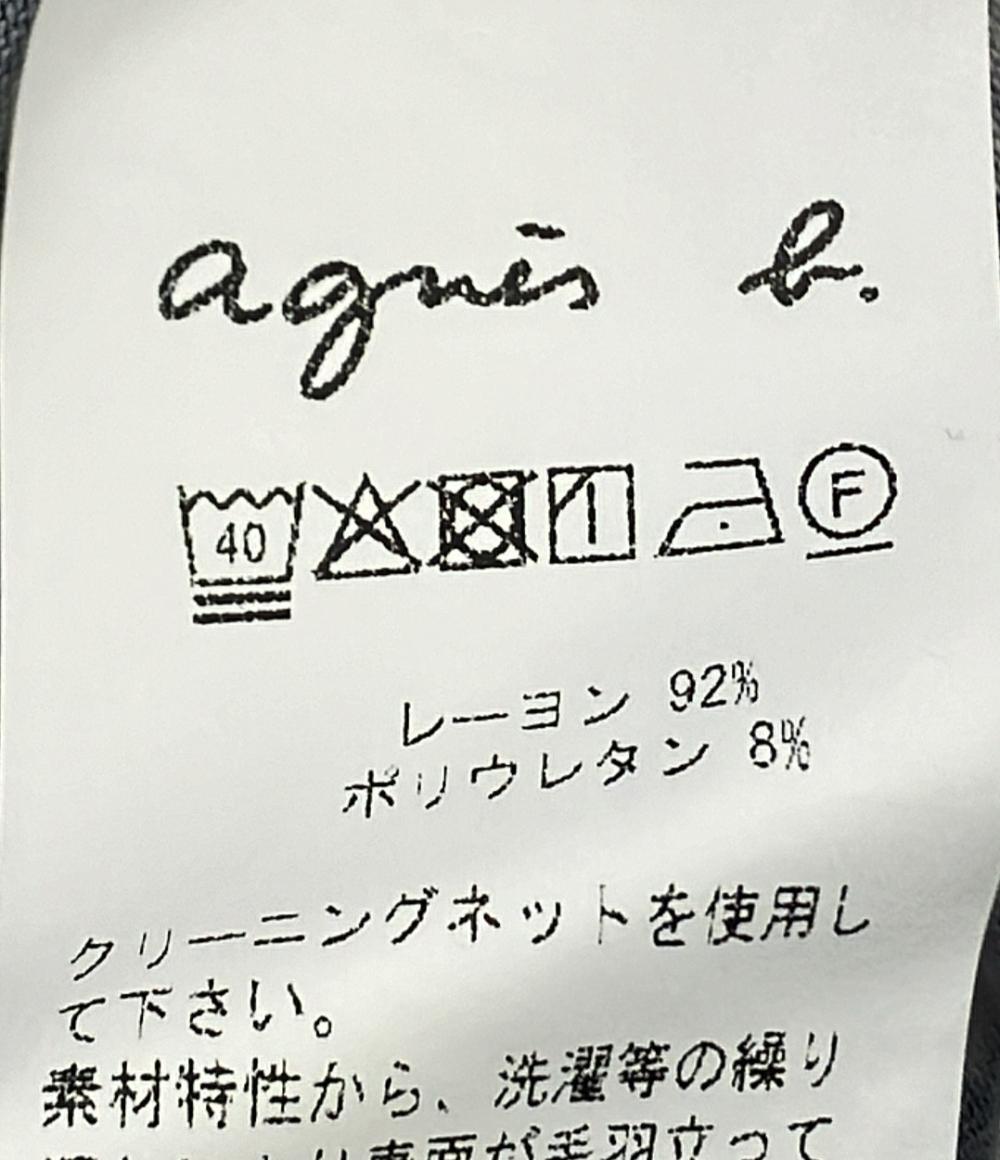 agnès b.
40 F
レーヨン 92%
ポリウレタン 8%
クリーニングネットを使用し
て下さい。
素材特性から、洗濯等の繰り
り表面が毛羽立って